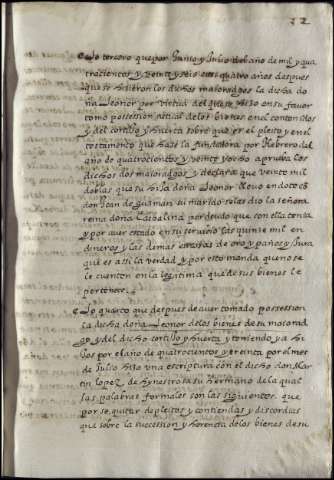 32
Lo tercero que por Junio y Julio del año de mil y qua
trocientos y veinte y seis ques quatro años despues
que se hizieron los dichos maioradgos la dicha do
ña Leonor por virtud del que se hizo en su favor
tomo possession actual de los bienes en el contenidos
y del cortijo y huerta sobre que es el pleito y en el
testamento que haze la fundadora por Hebrero del
año de quatrocientos y veinte y ocho aprueba los
dichos dos maioradgos y declara que veinte mil
doblas que su hija doña Leonor llevo en dote con
don Joan de Guzman su marido se las dio la señora
reina doña Cathalina por deudo que con ella tenia
y por aver estado en su servicio las quinze mil en
dineros y las demas en cosas de oro y paños y jura
que es assi la verdad y por esto manda que no se
le cuenten en la legitima que de sus bienes le
pertenece
Lo quarto que despues de aver tomado possession
la dicha doña Leonor de los bienes de su maiorad
go y del dicho cortijo y huerta y teniendo ya hi
jos por el año de quatrocientos y treinta por el mes
de Julio hizo una escriptura con el dicho don Mar
tin Lopez de hynestrosa su hermano de la qual
las palabras formales son las siguientes. que
por se quitar de pleitos y contiendas y discordias
que sobre la succession y herencia de los bienes de su